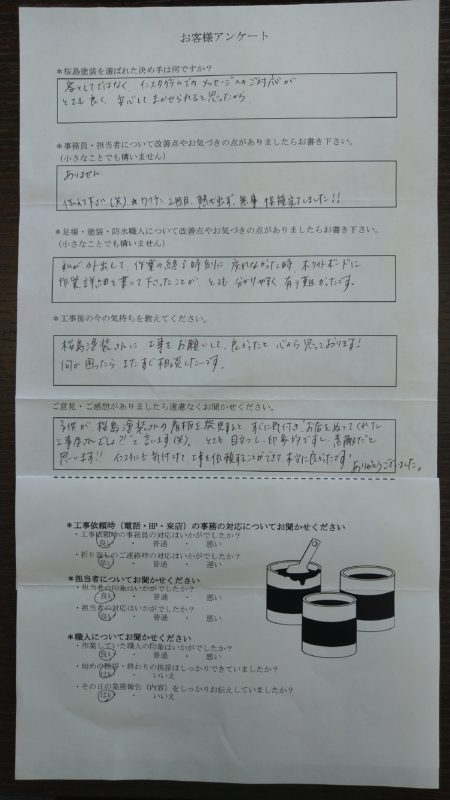 お客様アンケート
*桜島塗装を選ばれた決め手は何ですか?
客としてではなく、インスタグラムでのメッセージへのご対応が
とても良く、安心してまかせられると思ったから
*事務員・担当者について改善点やお気づきの点がありましたらお書き下さい。
(小さなことでも構いません)
ありません
伝えて下さい(笑) ワクチン2回目、熱も出ず、無事 接種完了しました!!
*足場・塗装・防水職人について改善点やお気づきの点がありましたらお書き下さい。
(小さなことでも構いません)
私が外出して、作業の終る時刻に戻れなかった時、ホワイトボードに
作業詳細を書いて下さったことが、とても分かりやすく有り難かったです。
*工事後の今の気持ちを教えてください。
桜島塗装さんに工事をお願いして、良かったと心から思っております!
何か困ったら またすぐ相談したいです。
ご意見・ご感想がありましたら遠慮なくお聞かせください。
子供が桜島塗装さんの看板を発見すると、すぐに気付き、お店をぬってくれた
工事屋さんでしょ?!と言います(笑)。とても目立つし、印象的ですし、素敵だと
思います!! インスタにも気付けて、工事を依頼することができて本当に良かったです!
ありがとうございました。
*工事依頼時(電話・HP・来店)の事務の対応についてお聞かせください
・工事依頼時の事務員の対応はいかがでしたか?
良い ・ 普通 ・ 悪い
・折り返しのご連絡時の対応はいかがでしたか?
早い ・ 普通 ・ 遅い
*担当者についてお聞かせください
・担当者の印象はいかがでしたか?
良い ・ 普通 ・ 悪い
・担当者の対応はいかがでしたか?
良い ・ 普通 ・ 悪い
*職人についてお聞かせください
・作業していた職人の印象はいかがでしたか?
良い ・ 普通 ・ 悪い
・始めの挨拶・終わりの挨拶はしっかりできていましたか?
はい ・ いいえ
・その日の業務報告(内容)をしっかりお伝えしていましたか?
はい ・ いいえ